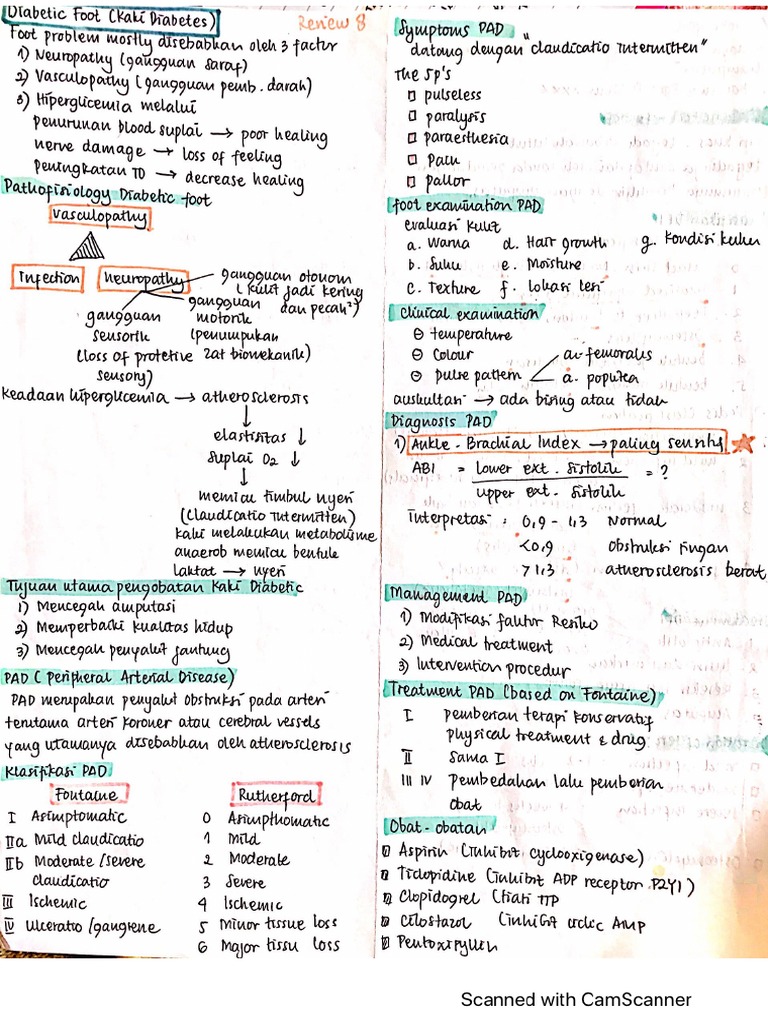 Diabetic Foot (Kaki Diabetes)
Review 8
Foot problem mostly disebabkan oleh 3 factor
1) Neuropathy (gangguan saraf)
2) Vasculopathy (gangguan pemb. darah)
3) Hiperglicemia melalui
penurunan blood suplai → poor healing
nerve damage → loss of feeling
peningkatan TD → decrease healing
Pathofisiology Diabetic foot
Vasculopathy
Infection
Neuropathy
gangguan otonom
(kulit jadi kering
dan pecah²)
gangguan
motorik
(penumpukan
zat biomekanik)
gangguan
sensorik
(loss of protetive
sensory)
Keadaan hiperglicemia → atherosclerosis
↓
elastisitas ↓
suplai O2 ↓
↓
memicu timbul nyeri
(Claudicatio Intermitten)
kaki melakukan metabolisme
anaerob memicu bentuk
laktat → nyeri
Tujuan utama pengobatan Kaki Diabetic
1) Mencegah amputasi
2) Memperbaiki kualitas hidup
3) Mencegah penyakit jantung
PAD (Peripheral Arterial Disease)
PAD merupakan penyakit obstruksi pada arteri
terutama arteri koroner atau cerebral vessels
yang utamanya disebabkan oleh atherosclerosis
Klasifikasi PAD
Fontaine
I Asimptomatic
IIa Mild claudicatio
IIb Moderate/severe
claudicatio
III Ischemic
IV Ulceratio/gangrene
Rutherford
0 Asimpthomatic
1 Mild
2 Moderate
3 Severe
4 Ischemic
5 Minor tissue loss
6 Major tissu loss
Symptoms PAD
"datang dengan claudicatio intermitten"
The 5p's
pulseless
paralysis
paraesthesia
Pain
pallor
foot examination PAD
evaluasi kulit
a. Warna d. Hair growth g. Kondisi kuku
b. Suhu e. Moisture
c. Texture f. Lokasi lesi
Clinical examination
temperature
Colour
pulse pattern
a. femoralis
a. poplitea
auskultasi → ada bising atau tidak
Diagnosis PAD
1) Ankle-Brachial Index → paling sensitif
ABI = Lower ext. Sistolik / upper ext. Sistolik = ?
Interpretasi : 0,9 - 1,3 Normal
<0,9 obstruksi ringan
>1,3 atherosclerosis berat
Management PAD
1) Modifikasi faktor Resiko
2) Medical treatment
3) Intervention procedur
Treatment PAD (based on Fontaine)
I pemberian terapi konservatif
physical treatment & drug
II sama I
III IV Pembedahan lalu pemberian
obat
Obat-obatan
Aspirin (inhibit cyclooxigenase)
Ticlopidine (inhibit ADP receptor P2Y1)
Clopidogrel
Cilostazol (inhibit cyclic AMP
Pentoxifyllin
Scanned with CamScanner